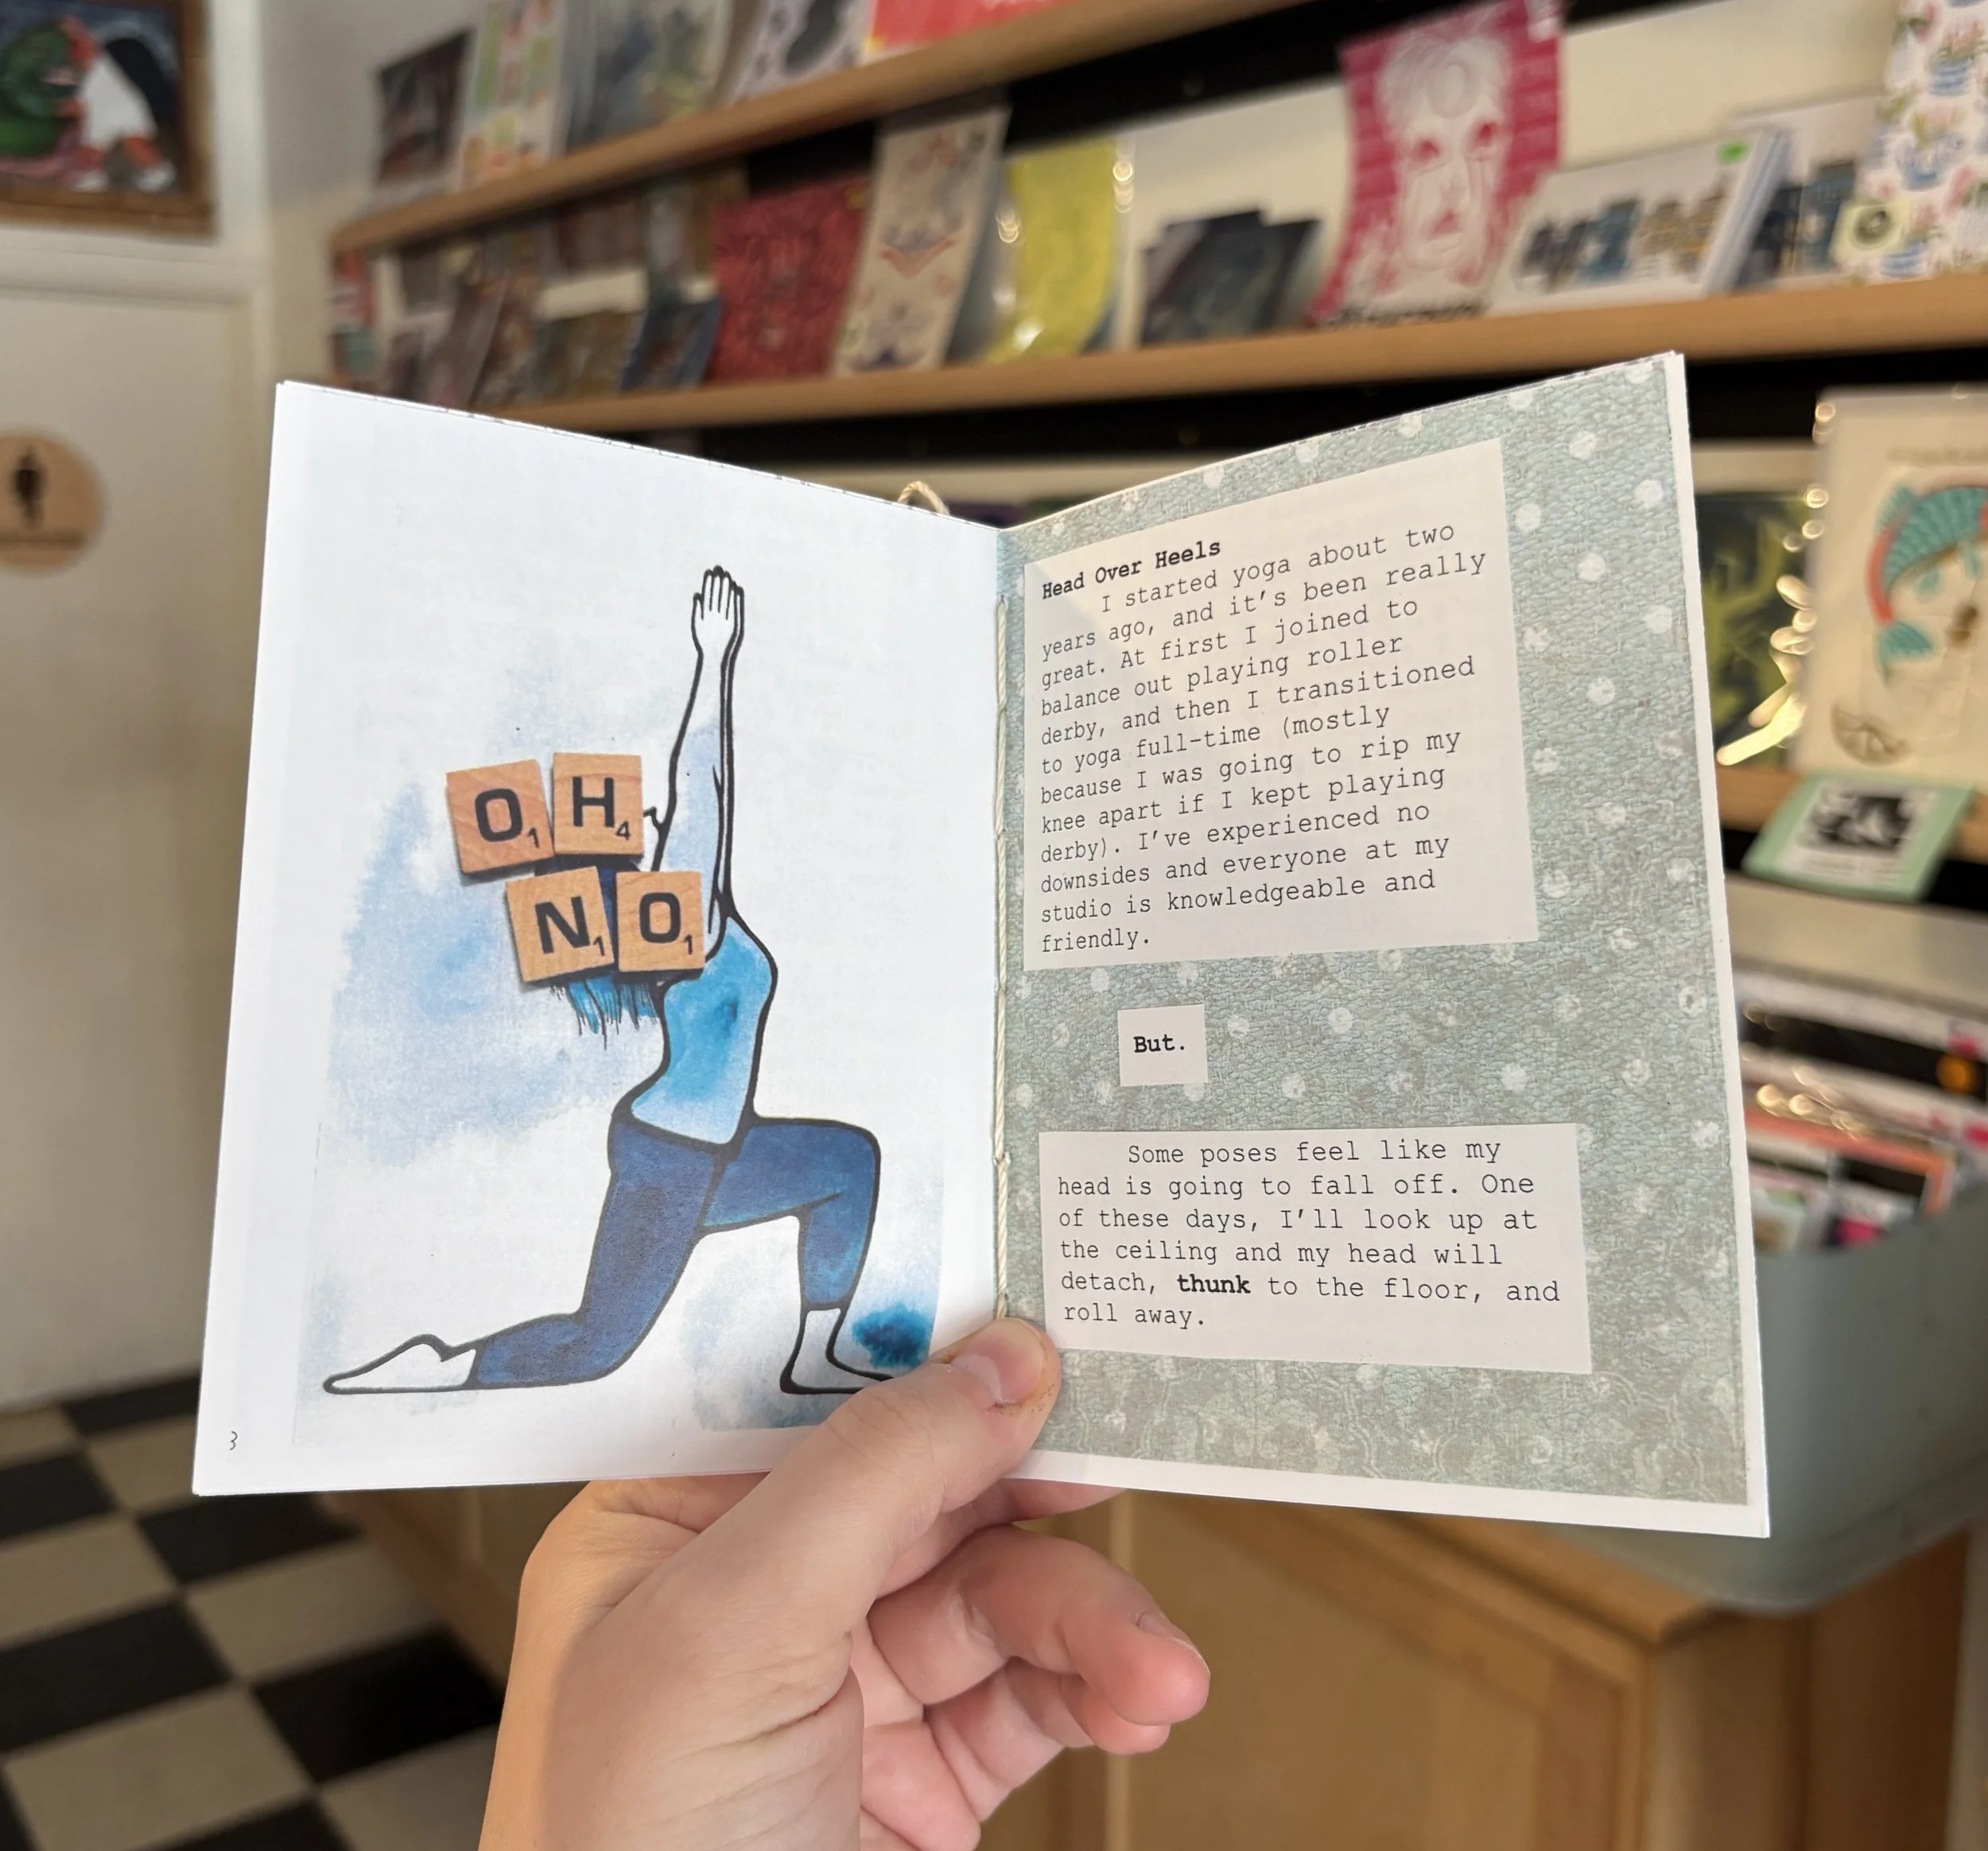 O1 H4
N1 O1
3
Head Over Heels
I started yoga about two
years ago, and it's been really
great. At first I joined to
balance out playing roller
derby, and then I transitioned
to yoga full-time (mostly
because I was going to rip my
knee apart if I kept playing
derby). I've experienced no
downsides and everyone at my
studio is knowledgeable and
friendly.
But.
Some poses feel like my
head is going to fall off. One
of these days, I'll look up at
the ceiling and my head will
detach, thunk to the floor, and
roll away.